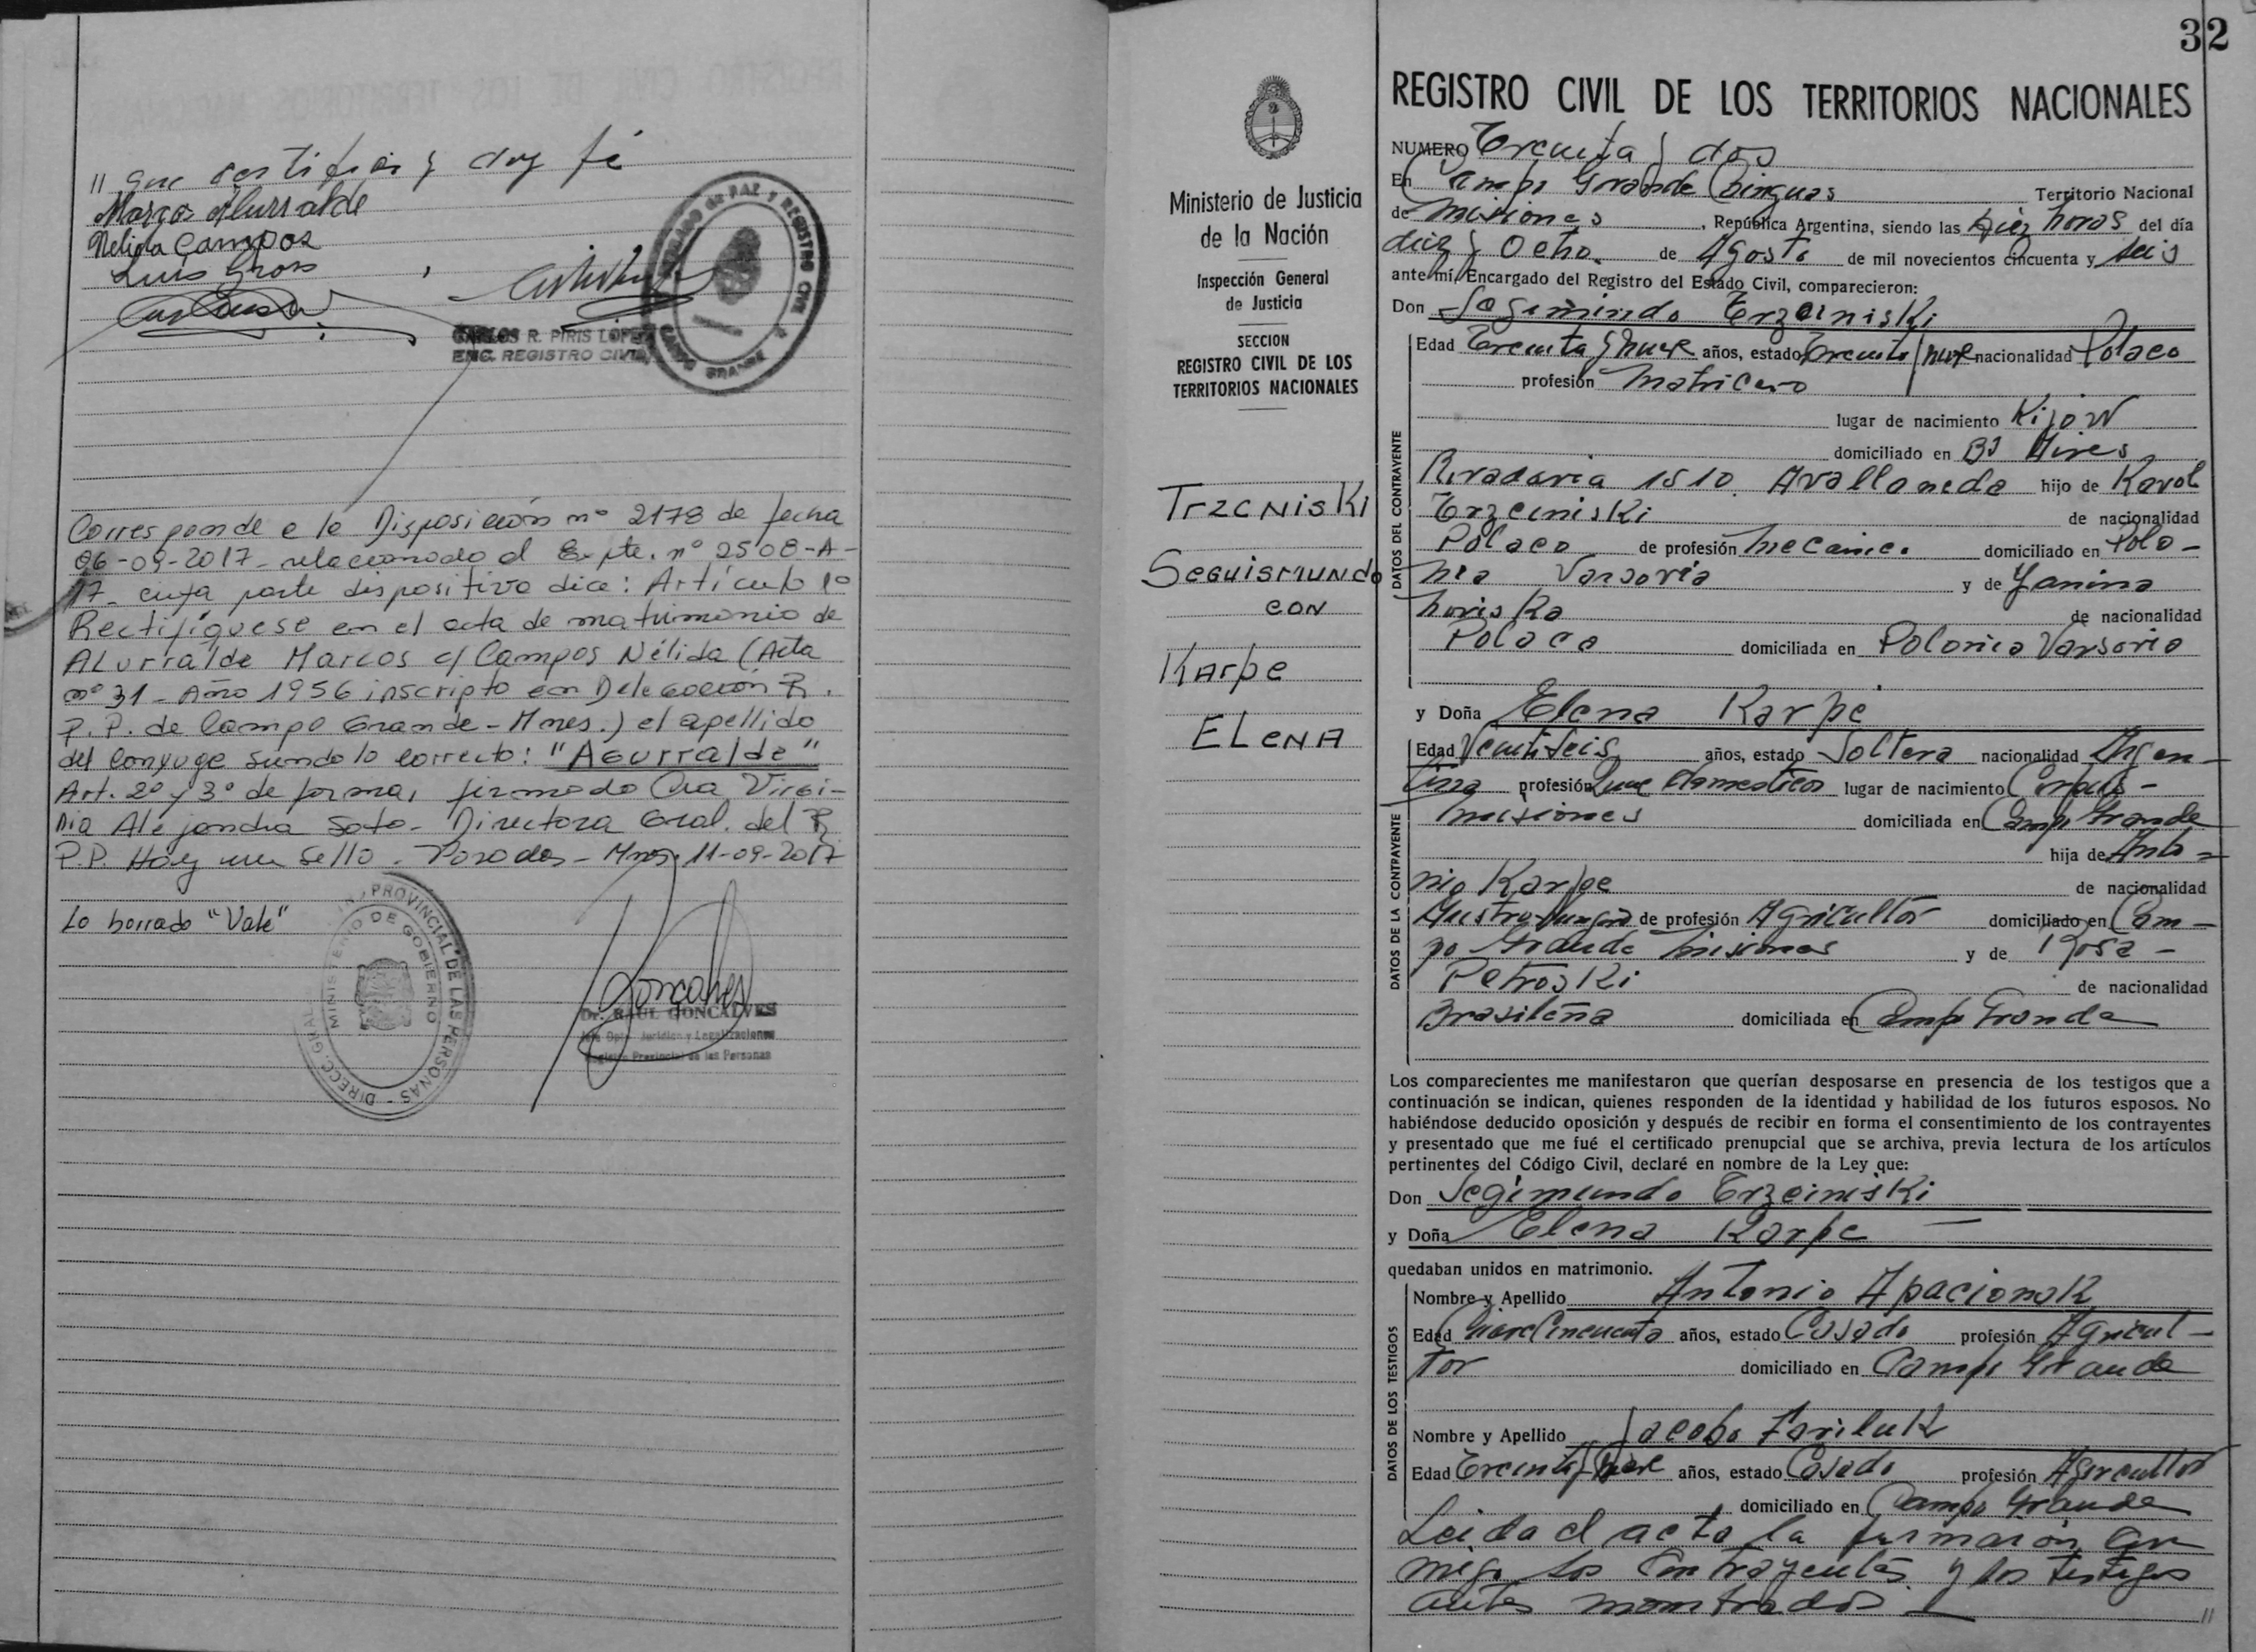 // que certifico y doy fé
Marcos Alurralde
Nelida Campos
Luis Gross
CARLOS R. PIRIS LOPEZ
ENC. REGISTRO CIVIL
JUZGADO de PAZ Y REGISTRO CIVIL
CAMPO GRANDE
Corresponde a la Disposición nº 2178 de fecha
06-09-2017_ relacionado al Expte. nº 2508-A-
17_ cuya parte dispositiva dice: Artículo 1º
Rectifíquese en el acta de matrimonio de
ALurralde Marcos c/ Campos Nélida (Acta
nº 31 - Año 1956 inscripto en Delegación R.
P.P. de Campo Grande - Mnes.) el apellido
del conyuge siendo lo correcto: "AGurralde"
Art. 2º y 3º de forma, firmado Cra Virgi-
nia Alejandra Soto - Directora Gral. del R
P.P. Hay un Sello. Posadas - Mnes. 11-09-2017
Lo borrado "Vale"
DIRECC. GRAL PROVINCIAL DE LAS PERSONAS -
MINISTERIO DE GOBIERNO
Dr. RAUL GONCALVES
Jefe Dpto. Jurídico y Legalizaciones
Registro Provincial de las Personas
32
Ministerio de Justicia
de la Nación
Inspección General
de Justicia
SECCION
REGISTRO CIVIL DE LOS
TERRITORIOS NACIONALES
Trzcniski
Seguismundo
con
Karpe
Elena
REGISTRO CIVIL DE LOS TERRITORIOS NACIONALES
NUMERO Treinta y dos
En Campo Grande Territorio Nacional
de Misiones, República Argentina, siendo las diez horas del día
diez y Ocho. de Agosto de mil novecientos cincuenta y seis
ante mí, Encargado del Registro del Estado Civil, comparecieron:
Don Segimundo Trzceiniski
DATOS DEL CONTRAYENTE
Edad Treinta y nueve años, estado Treinta y nueve nacionalidad Polaco
profesión Matricero
lugar de nacimiento Kijow
domiciliado en Bs Aires
Rivadavia 1510. Avallaneda hijo de Karol
Trzceiniski de nacionalidad
Polaco de profesión Mecanico domiciliado en Polo-
nia Varsovia y de Yanina
de nacionalidad
Polaca domiciliada en Polonia Varsovia
y Doña Elena Karpe
DATOS DE LA CONTRAYENTE
Edad Veintiseis años, estado Soltera nacionalidad Argen-
tina profesión Domesticos lugar de nacimiento Corpus -
Misiones domiciliada en Campo Grande
hija de Anto-
nio Karpe de nacionalidad
Austro-Hungaro de profesión Agricultor domiciliado en Cam-
po Grande Misiones y de Rosa -
Petroski de nacionalidad
Brasileña domiciliada en Campo Grande
Los comparecientes me manifestaron que querían desposarse en presencia de los testigos que a
continuación se indican, quienes responden de la identidad y habilidad de los futuros esposos. No
habiéndose deducido oposición y después de recibir en forma el consentimiento de los contrayentes
y presentado que me fué el certificado prenupcial que se archiva, previa lectura de los artículos
pertinentes del Código Civil, declaré en nombre de la Ley que:
Don Segimundo Trzceiniski
y Doña Elena Karpe
quedaban unidos en matrimonio.
DATOS DE LOS TESTIGOS
Nombre y Apellido Antonio Apacionok
Edad Cincuenta años, estado Casado profesión Agricul-
tor domiciliado en Campo Grande
Nombre y Apellido Jacobo Foriluk
Edad Treinta y nueve años, estado Casado profesión Agricultor
domiciliado en Campo Grande
Leida el acta la firmaron con
migo los Contrayentes y los testigos
antes nombrados //